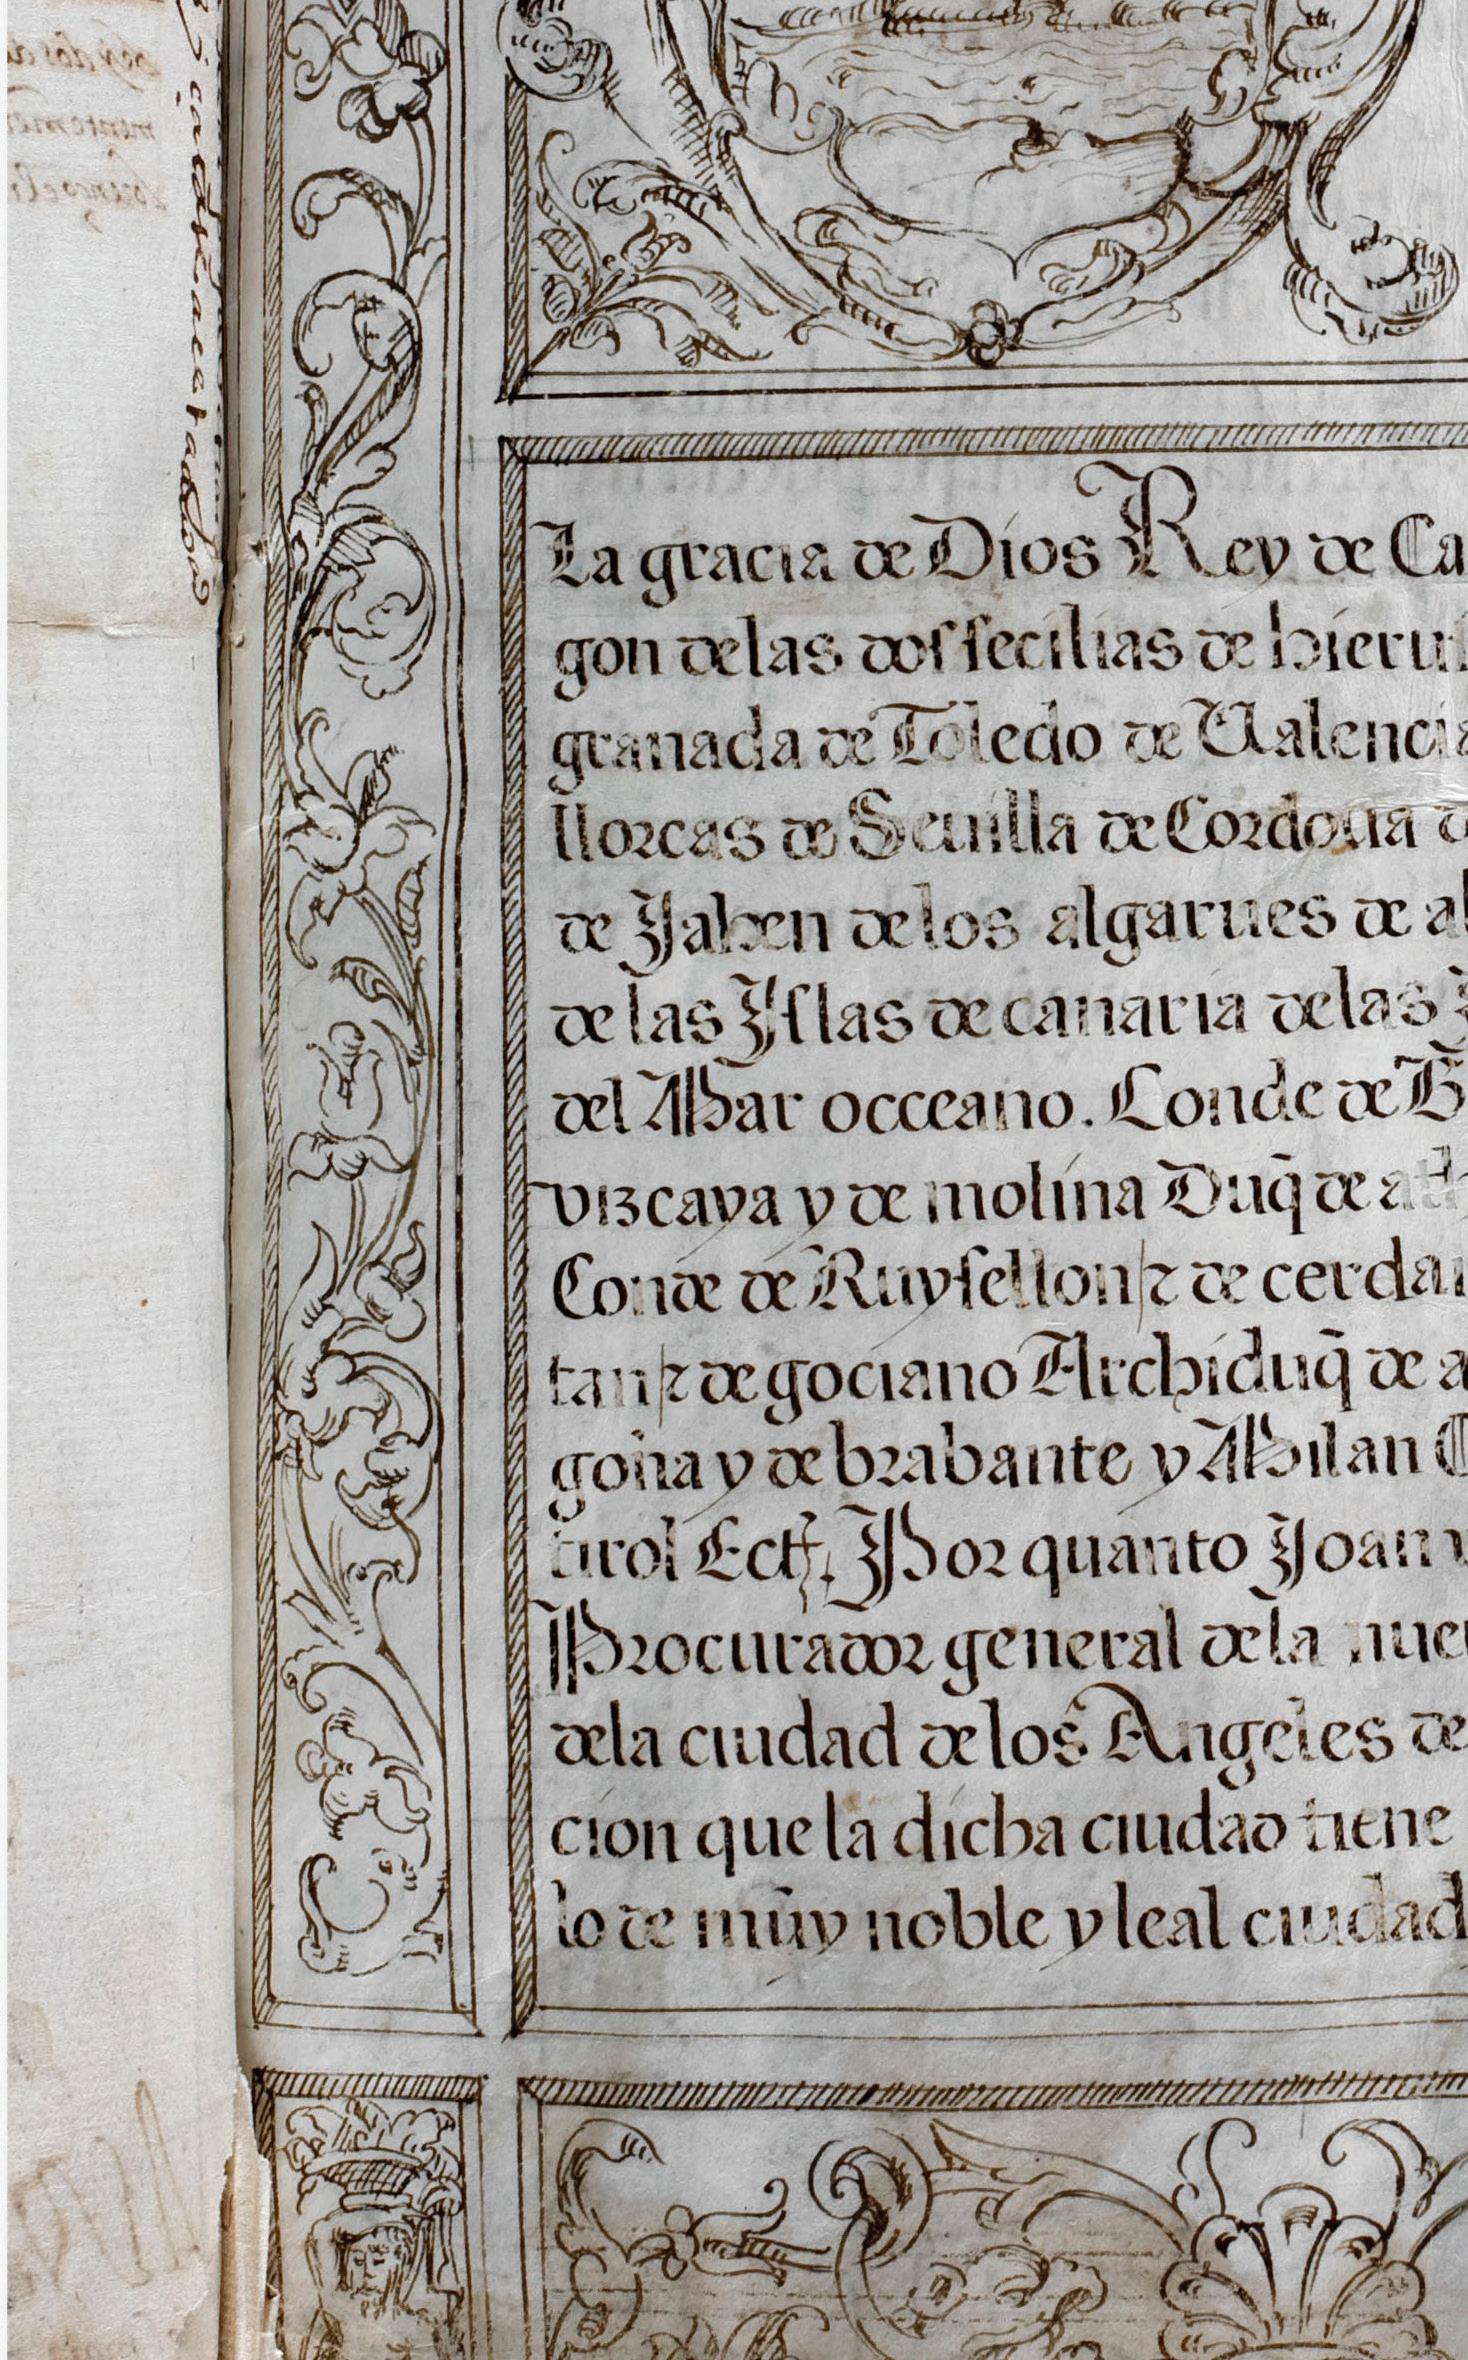 La gracia de Dios Rey de Ca
gon delas dos secilias de hierus
granada de Toledo de Ualencia
llorcas de Seuilla de Cordoua d
de Jahen delos algarues de al
de las Yslas de canaria delas
del Mar occeano. Conde de B
vizcaya y de molina Duq̃ de ath
Conde de Ruysellon ꝛ de cerdan
tan ꝛ de gociano Archiduq̃ de a
goña y de brabante y Milan C
tirol Ect. Por quanto Joan
Procurador general dela nue
dela ciudad de los Angeles de
cion que la dicha ciudad tiene
lo de muy noble y leal ciudad